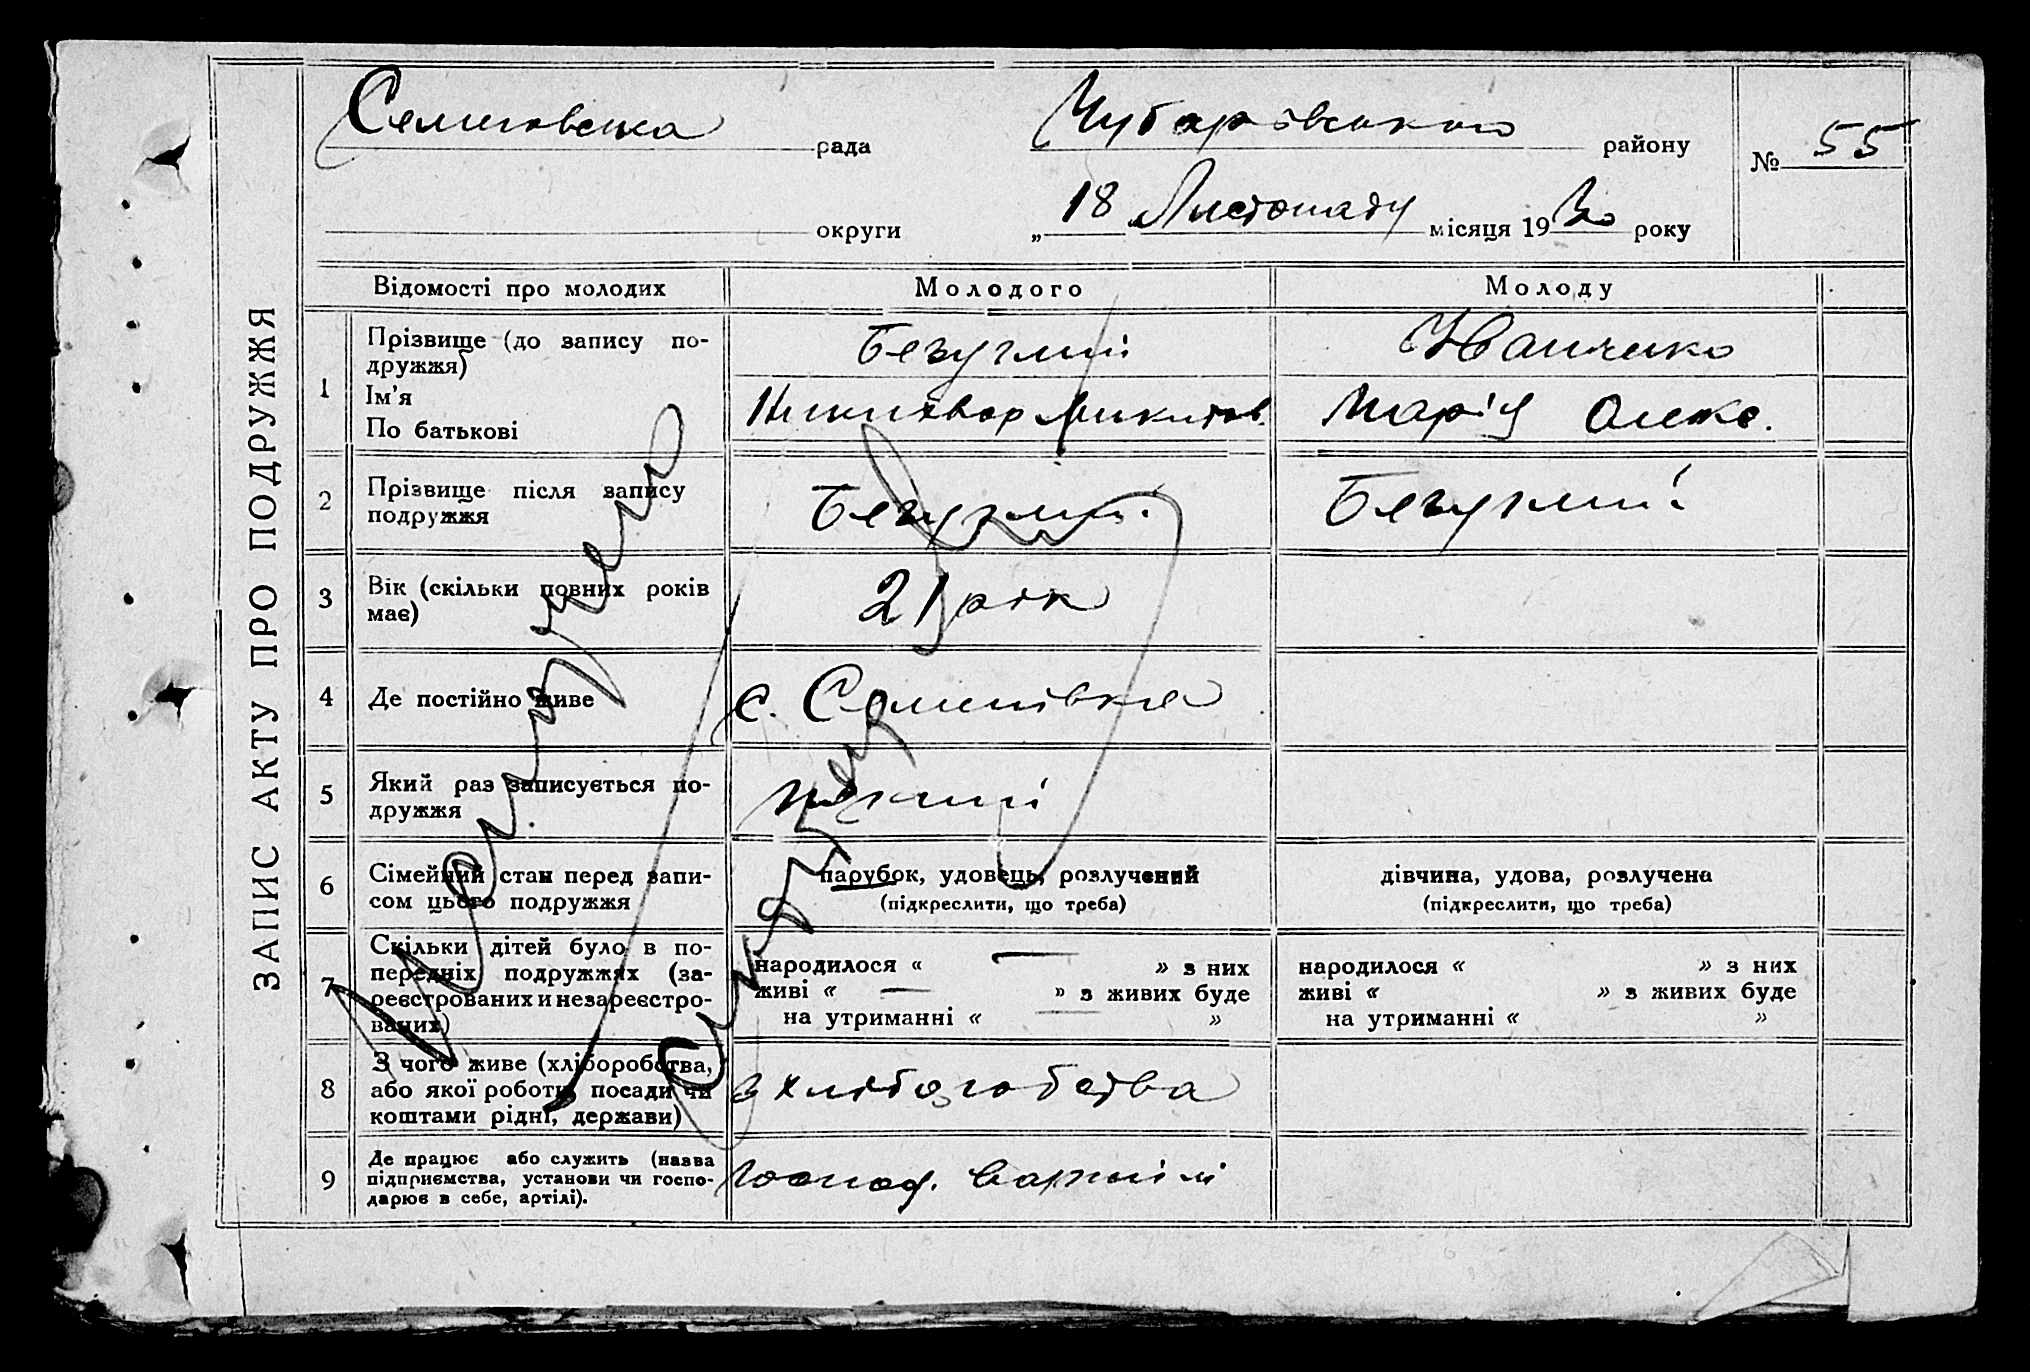 ЗАПИС АКТУ ПРО ПОДРУЖЖЯ
рада
Чубарівського району
№ 55
округи
„ 18 Листопаду місяця 1930 року
Відомості про молодих
Молодого
Молоду
1
Прізвище (до запису по-
дружжя)
Ім'я
По батькові
Безуглий
Никихвор Микитов.
Іванченко
Марія Олекс.
2
Прізвище після запису
подружжя
Безуглий
Безуглий
3
Вік (скільки повних років
має)
21 рік
4
Де постійно живе
с. Семенівка
5
Який раз записується по-
дружжя
перший
6
Сімейний стан перед запи-
сом цього подружжя
парубок, удовець, розлучений
(підкреслити, що треба)
дівчина, удова, розлучена
(підкреслити, що треба)
7
Скільки дітей було в по-
передніх подружжях (за-
реєстрованих и незареєстро-
ваних)
народилося “ — ” з них
живі “ — ” з живих буде
на утриманні “ — ”
народилося “ ” з них
живі “ ” з живих буде
на утриманні “ ”
8
З чого живе (хліборобства,
або якої роботи, посади чи
коштами рідні, держави)
з хліборобства
9
Де працює або служить (назва
підприємства, установи чи госпо-
дарює в себе, артілі).
господ. в артілі